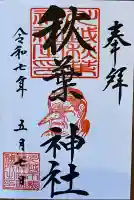 奉拝
秋葉神社
令和七年
五月